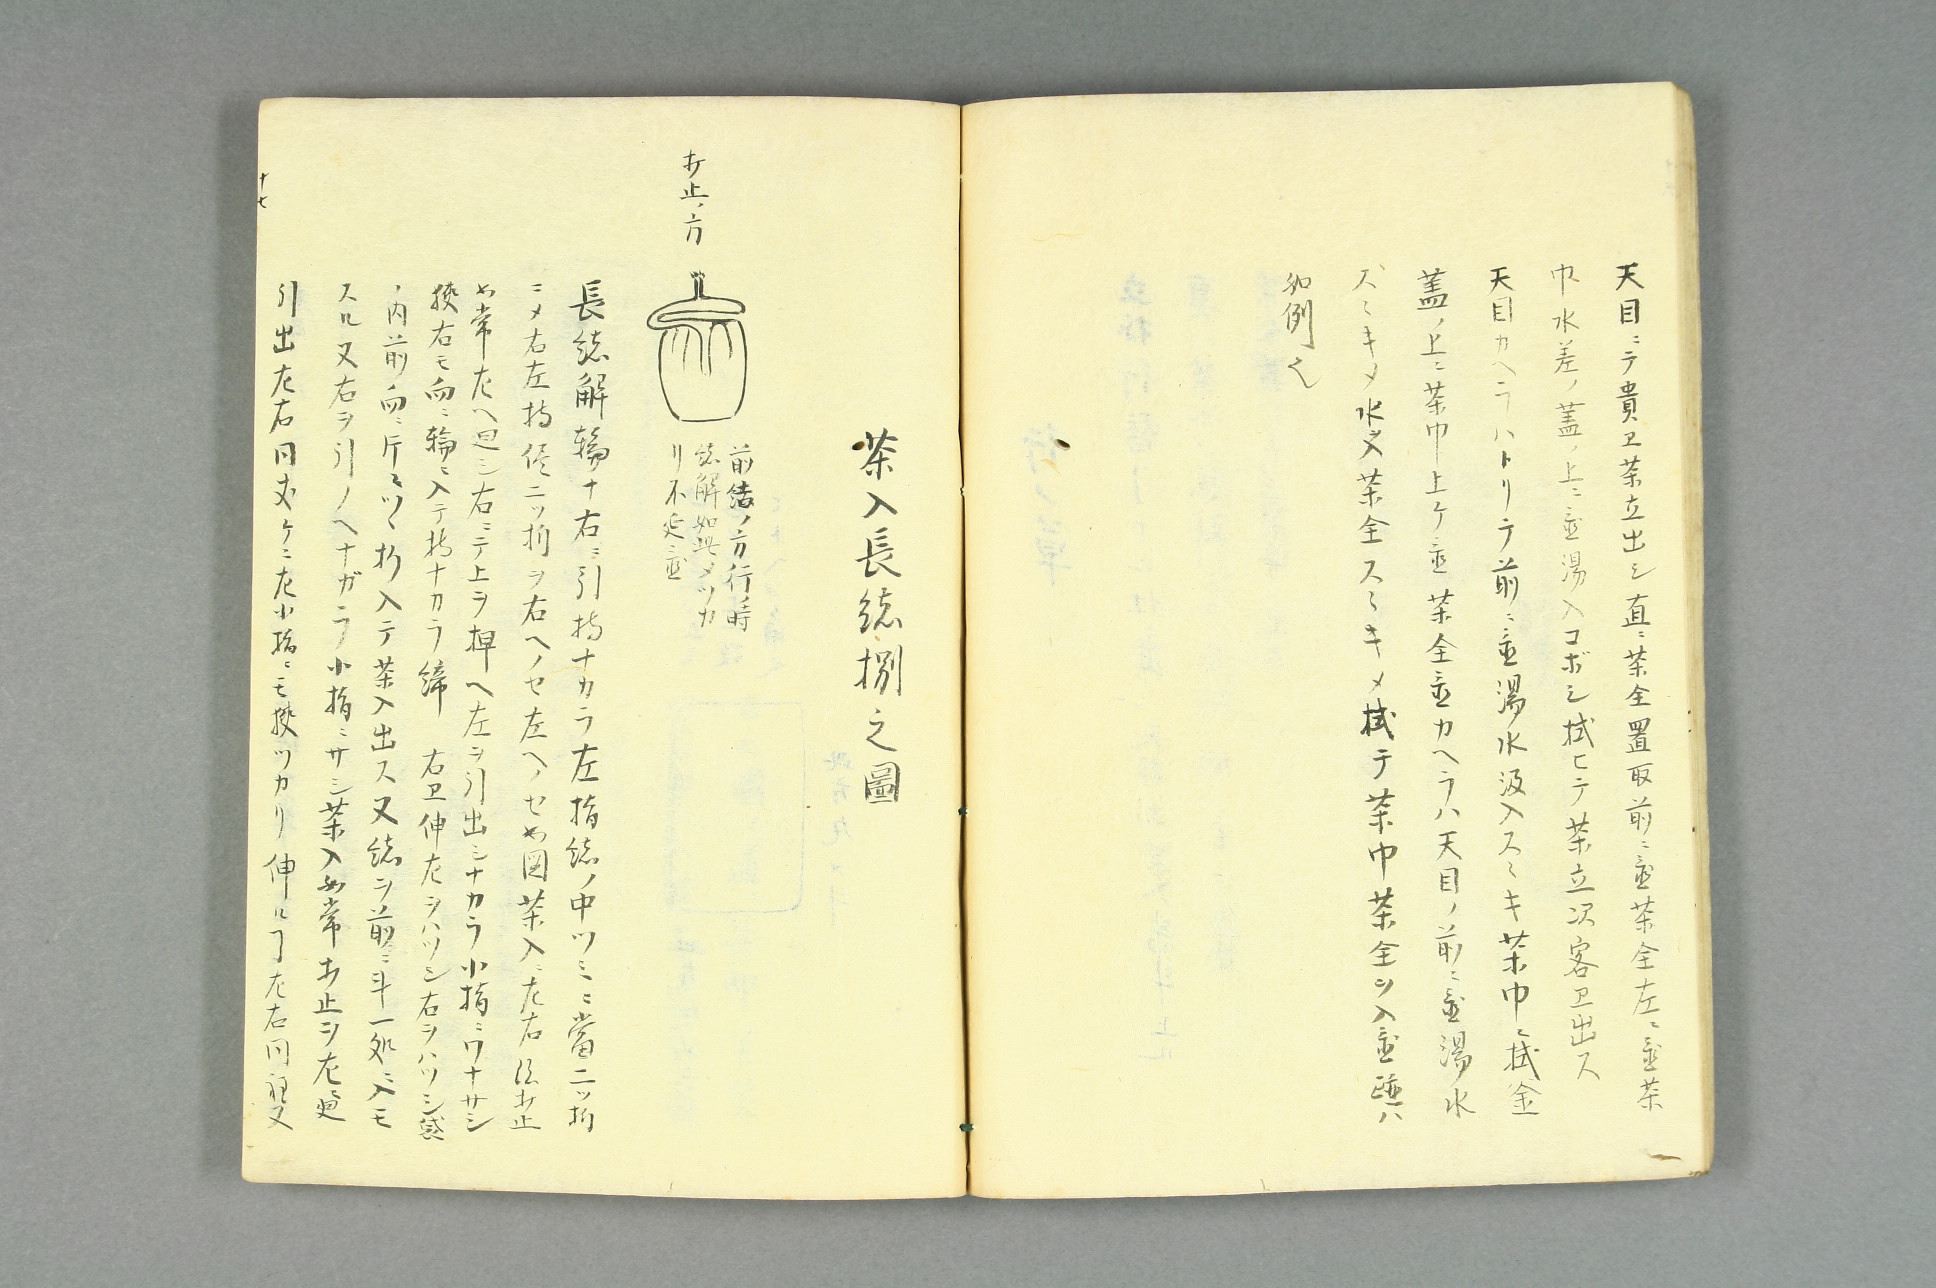 天目ニテ貴卫茶立出シ直ニ茶全置取前ニ䀈茶全左ニ䀈茶
巾水差ノ蓋ノ上ニ䀈湯入コボシ拭ヒテ茶立次客卫出ス
天目カヘラハトリテ前ニ䀈湯水汲入スヽキ茶巾ニ拭釜
蓋ノ上ニ茶巾上ケ䀈茶全䀈カヘラハ天目ノ前ニ䀈湯水
スヽキメ水又茶全スヽキメ拭テ茶巾茶全ヲ入䀈
如例之
茶入長緒捌之圖
打止ノ方
前結ノ方行時
緒解如此メツカ
リ不延䀈
長緒解輪ナ右ニ引持ナカラ左指緒ノ中ツミニ當二ツ折
ニメ右左持侭二ツ折ヲ右ヘノセ左ヘノセ如図茶入ニ左右 打止
如常左ヘ廻シ右ニテ上ヲ押ヘ左ヲ引出シナカラ小指ニワナサシ
挾右モ向ニ輪ニ入テ持ナカラ締 右卫伸左ヲハツシ右ヲハツシ袋
ノ内前向ニ片ヽツヽ折入テ茶入出ス又緒ヲ前ニ斗一処ニ入モ
スル又右ヲ引ノヘナガラ小指ニサシ茶入如常打止ヲ左ニ廻
引出左右同丈ケニ左小指ニモ挾ツカリ伸ルヿ左右同 又
十七